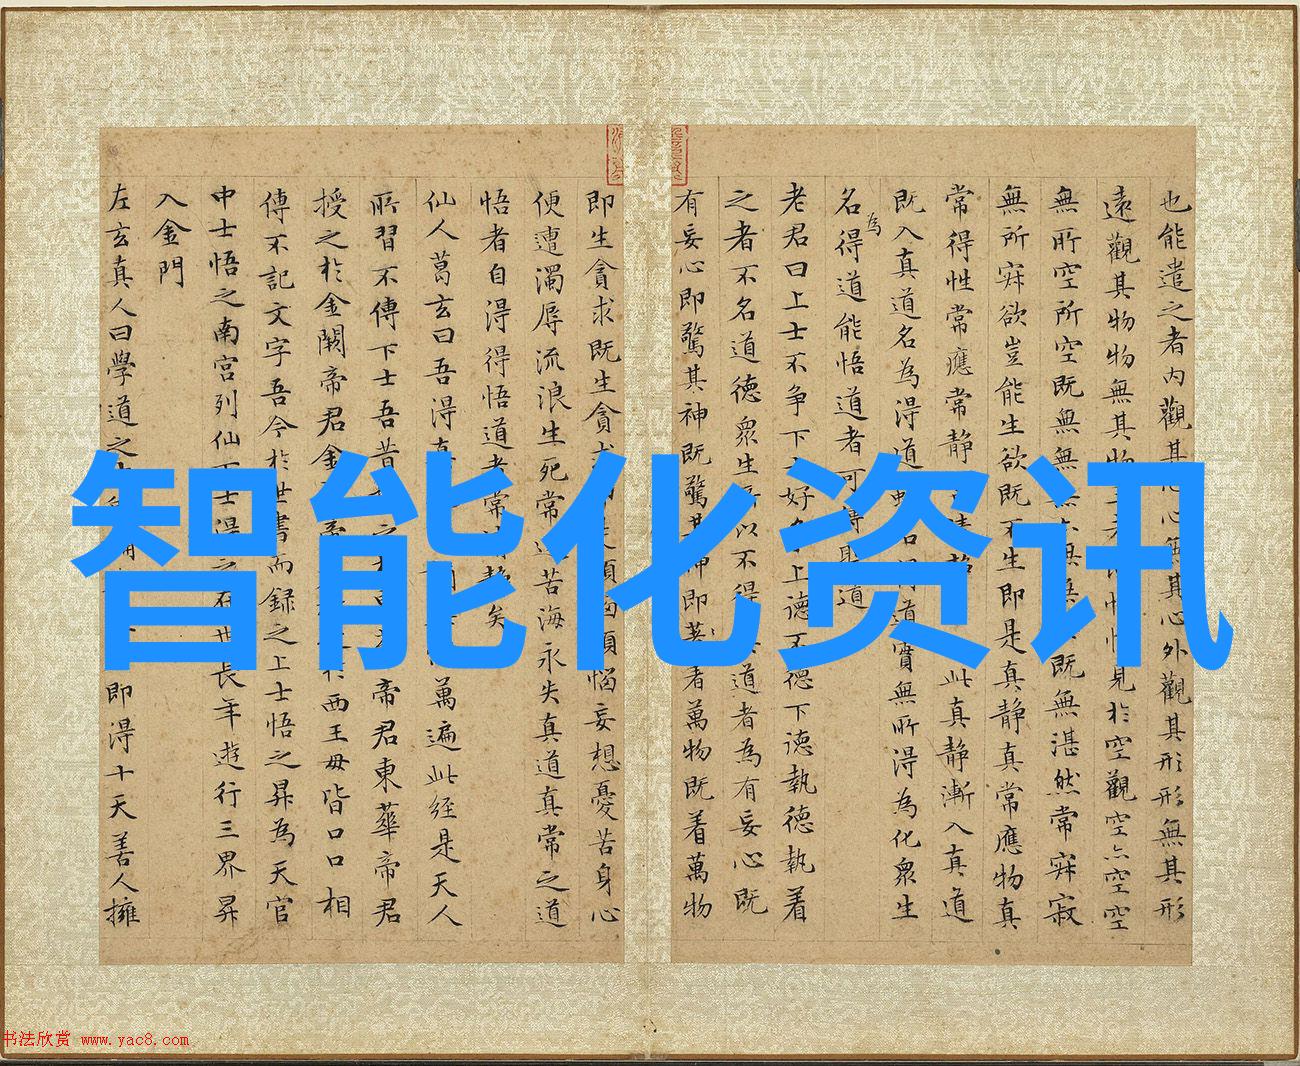 也能遣之者内觀其心無其心外觀其形形無其形
遠觀其物物無其物見於空觀空亦空空
無所空所空既無無無無既無湛然常寂寂
無所寂欲豈能生欲既不生即是真静真常應物真
常得性常應常静此真静漸入真道
既入真道名為得道名得道實無所得為化衆生
名為得道能悟道者可道
老君曰上士不争下好上德不德下德執德執着
之者不名道德衆生以不得道者為有妄心既
有妄心即驚其神既驚其神即著萬物既着萬物
即生貪求既生貪煩惱妄想憂苦身心
便遭濁辱流浪生死常苦海永失真道真常之道
悟者自得得悟道者常矣
仙人葛玄曰吾得真萬遍此經是天人
所習不傳下士吾昔之帝君東華帝君
授之於金闕帝君金西王母皆口口相
傳不記文字吾今於世書而録之上士悟之昇為天官
中士悟之南宫列仙下士得之在世長年遊行三界昇
入金門
左玄真人曰學道之即得十天善人擁
智能化资讯
书法欣赏 www.yac8.com